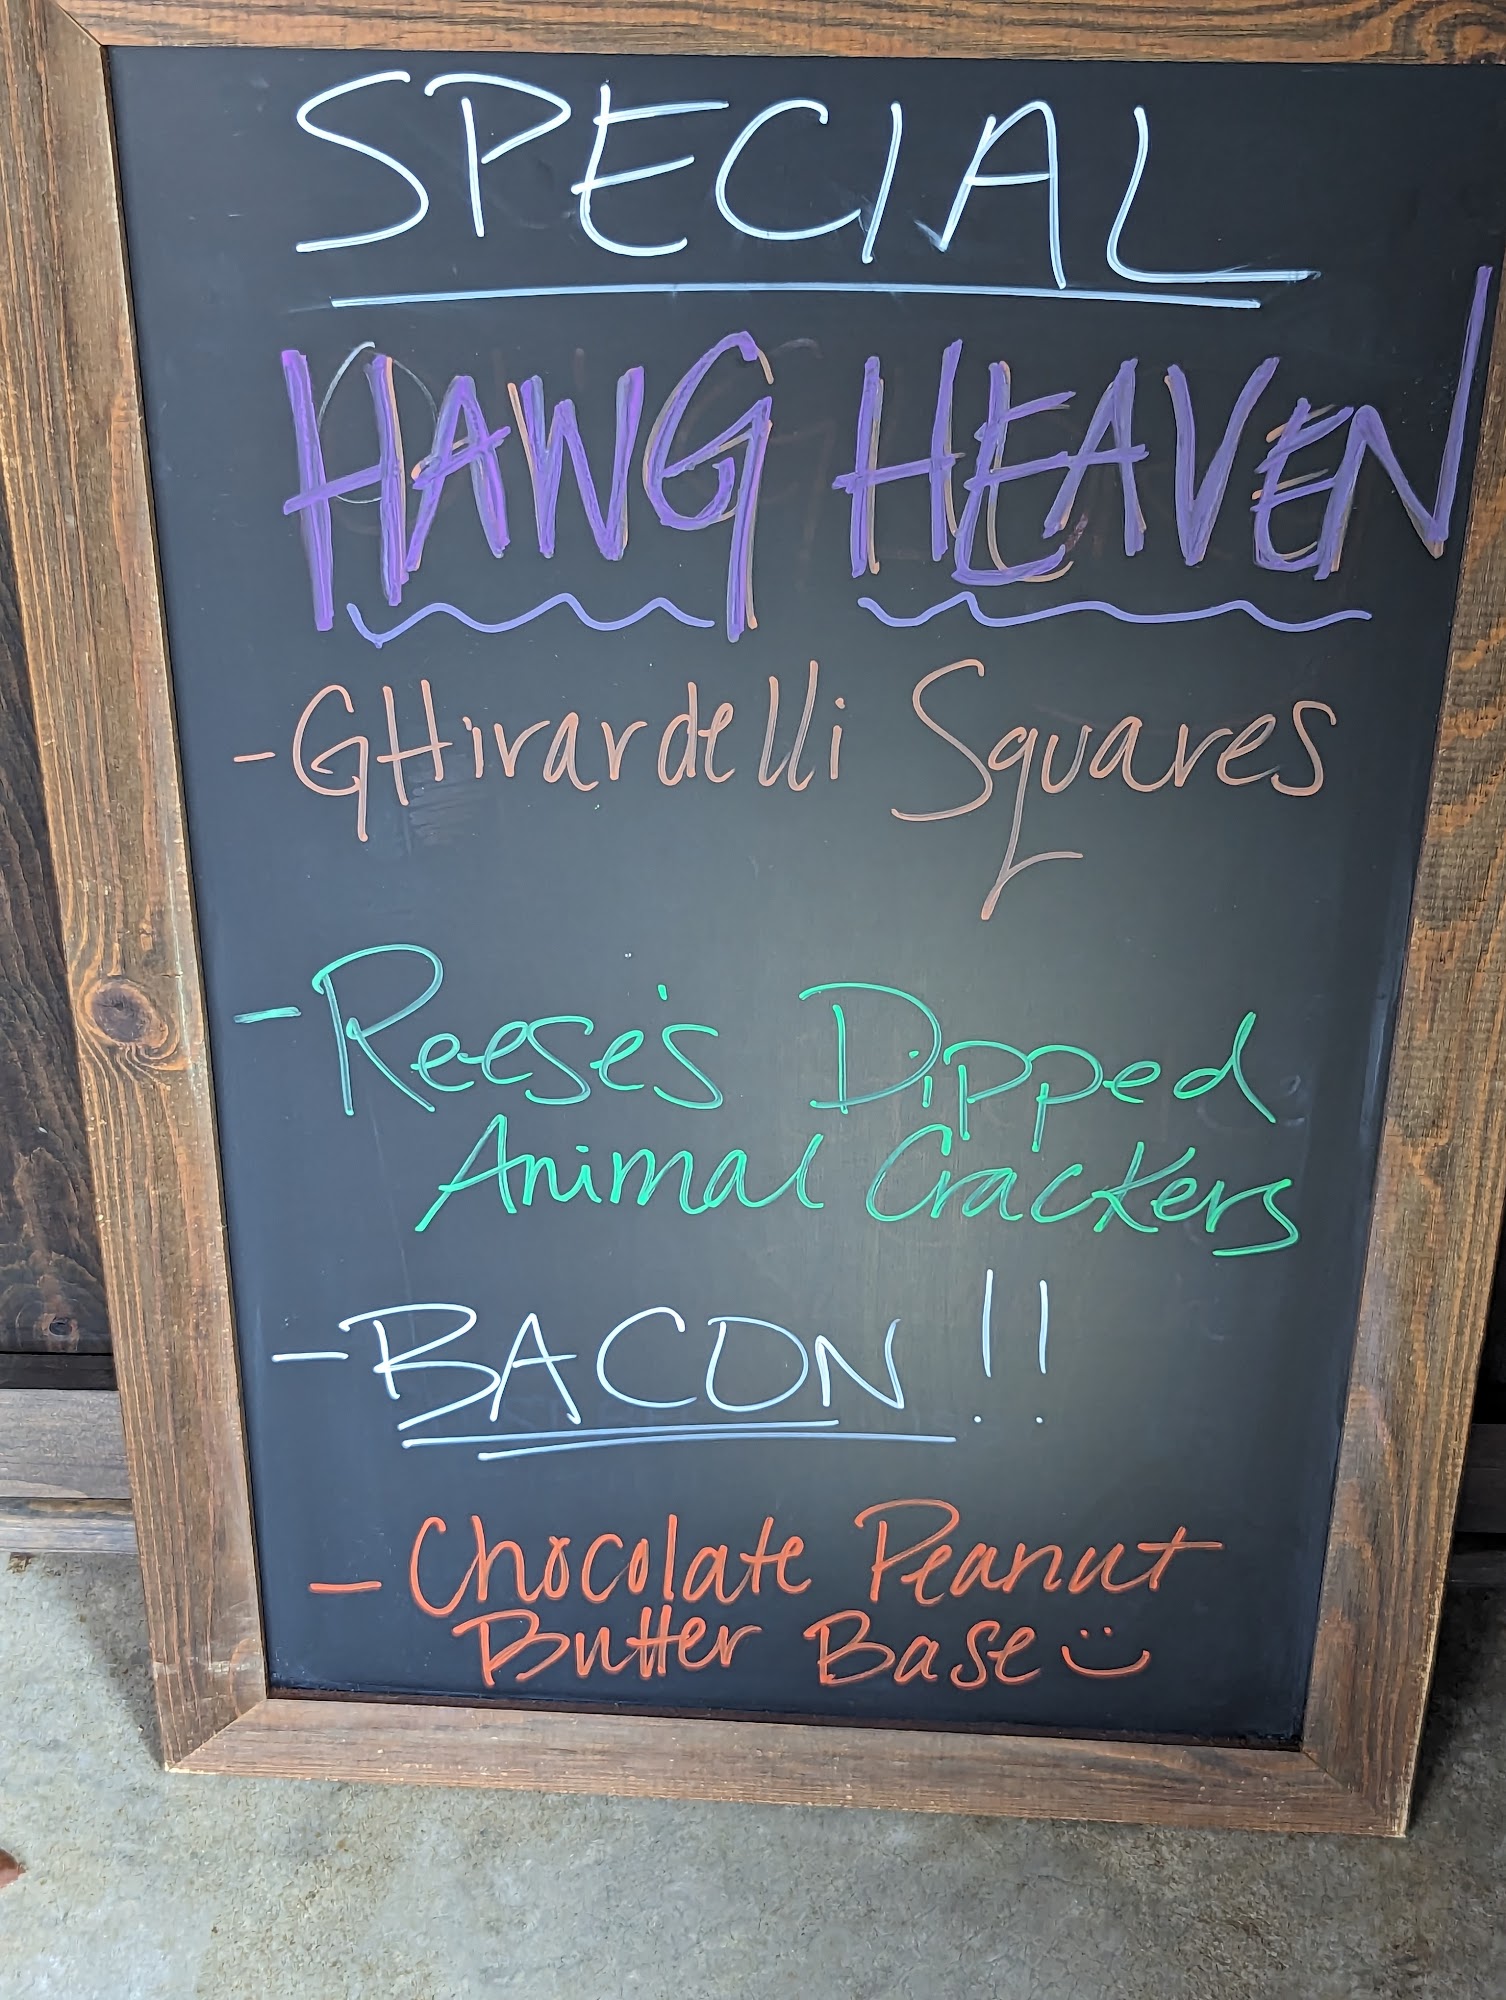 SPECIAL
HAWG HEAVEN
- GHirardelli Squares
- Reese's Dipped
Animal Crackers
- BACON!!
- Chocolate Peanut
Butter Base